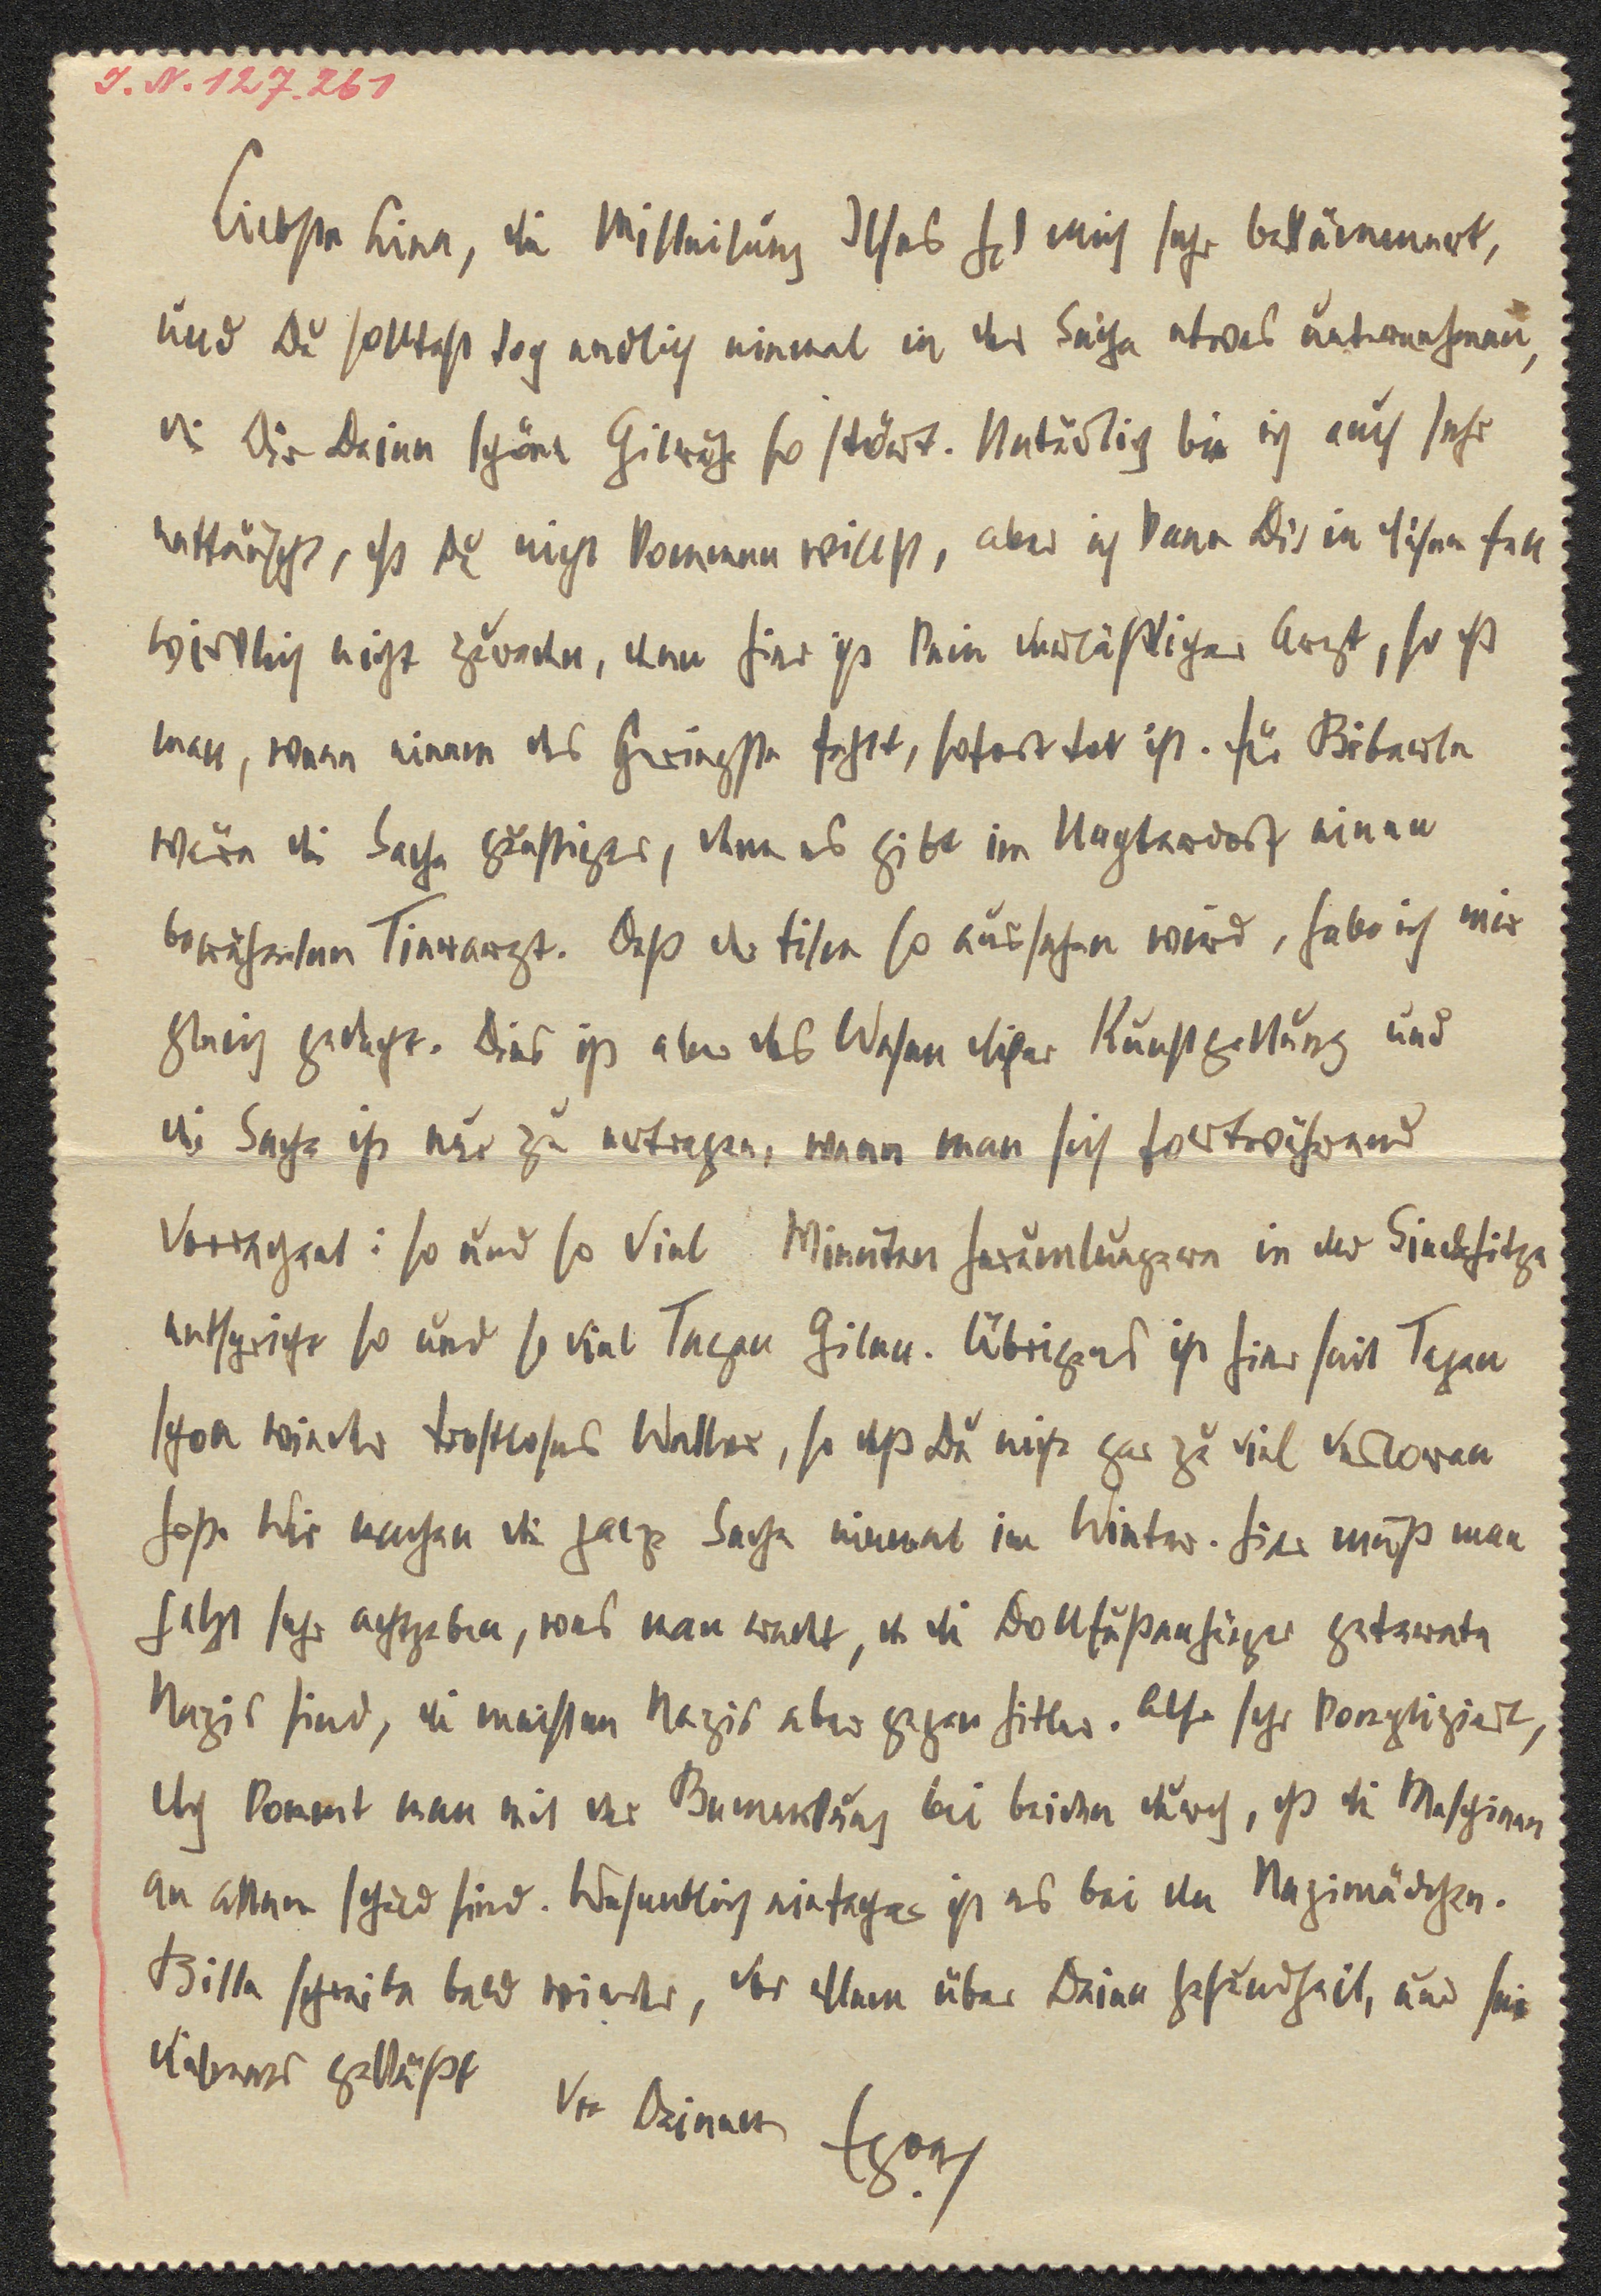 I. N. 127.261
Liebste Lina, die Mitteilung Ilses hat mich sehr bekümmert,
und Du solltest doch endlich einmal in der Sache etwas unternehmen,
die Dir Deine schöne so stört. Natürlich bin ich auch sehr
enttäuscht, daß Du nicht kommen willst, aber ich kann Dir in diesem Fall
wirklich nicht zureden, denn hier ist kein verläßlicher Arzt, so daß
man, wenn einem das Geringste fehlt, sofort tot ist. Für Biberle
wäre die Sache günstiger, denn es gibt im Nachbardorf einen
bewährten Tierarzt. Daß der so aussehen wird, habe ich mir
gleich gedacht. Dies ist aber das Wesen dieser Kunstgattung und
die Sache ist nur zu ertragen, wenn man sich fortwährend
vorrechnet: so und so viel Minuten herumlungern in der Siedehitze
entspricht so und so viel Tagen Gilm. Übrigens ist hier seit Tagen
schon wieder trostloses Wetter, so daß Du nicht gar zu viel verloren
hast. Wir machen die ganze Sache einmal im Winter. Hier muß man
jetzt sehr achtgeben, was man redet, da die Dollfußanhänger getarnte
Nazis sind, die meisten Nazis aber gegen Hitler. Also sehr kompliziert,
doch kommt man mit der Bemerkung bei beiden durch, daß die Maschinen
an allem schuld sind. Wesentlich einfacher ist es bei den Nazimädchen.
Bitte schreibe bald wieder, vor allem über Deine Gesundheit, und sei
geküßt
Von Deinem Egon